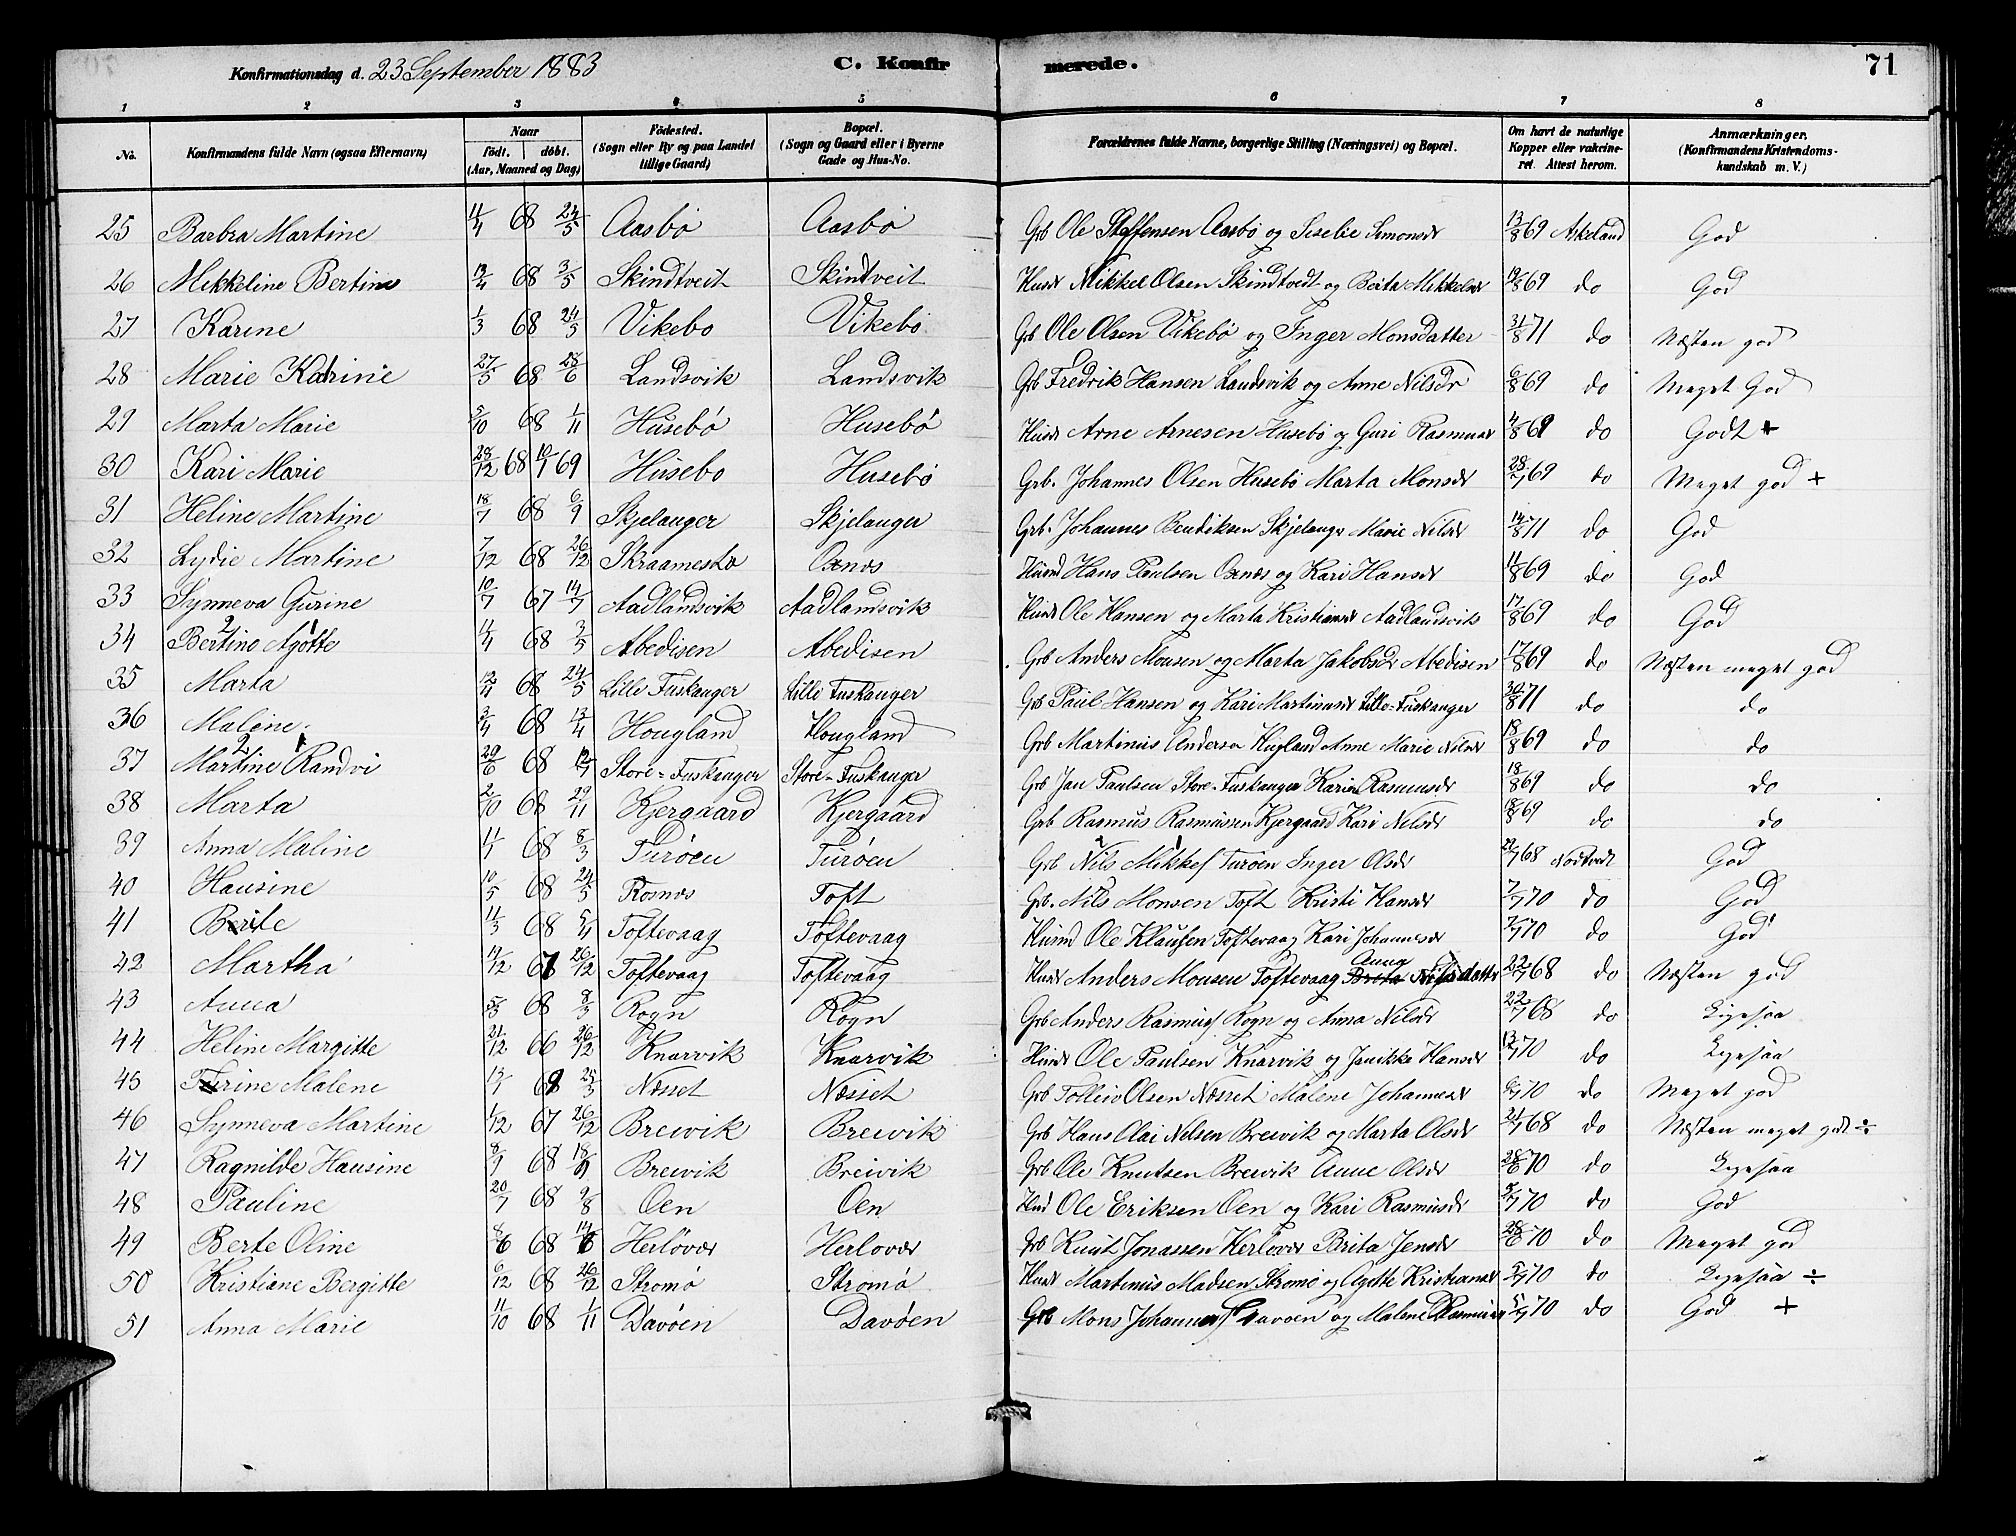 Konfirmationsdag d. 23 September 1883 C. Konfirmerede. 71
1 2 3 4 5 6 7 8
No. Konfirmandens fulde Navn (ogsaa Efternavn) Naar födt. döbt. (Aar, Maaned og Dag) Födested. (Sogn eller By og paa Landet tillige Gaard) Bopæl. (Sogn og Gaard eller i Byerne Gade og Hus-No. Forældrenes fulde Navne, borgerlige Stilling (Næringsvei) og Bopæl. Om havt de naturlige Kopper eller vakcineret. Attest herom. Anmærkninger. (Konfirmandens Kristendomskundskab m. V.)
25 Barbra Martine 11/4 68 24/5 Aasbö Aasbö Grb Ole Steffensen Aasbö og Siselie Simonsdr 13/8 69 Askeland God
26 Mikkeline Bertine 19/4 68 3/5 Skindtveit Skindtveit Husd Mikkel Olsen Skindtvedt og Berta Mikkelsdr 19/8 69 do God
27 Karine 1/3 68 24/5 Vikebo Vikebö Grb Ole Olsen Vikebö og Inger Monsdatter 31/8 71 do Næsten god
28 Marie Katrine 27/5 68 28/6 Landsvik Landsvik Grb Fredrik Hansen Landsvik og Anne Nilsdr 6/8 69 do Meget God
29 Marta Marie 5/10 68 1/11 Husebö Husebö Husd Arne Arnesen Husebö og Guri Rasmusdr 4/8 69 do Godt +
30 Kari Marie 28/12 68 10/1 69 Husebo Husebö Grb. Johannes Olsen Husebö Marta Monsdr 28/7 69 do Meget god +
31 Heline Martine 18/7 68 6/9 Skjelanger Skjelanger Grb. Johannes Bendiksen Skjelanger Marie Nilsdr 14/8 71 do God
32 Lydie Martine 7/12 68 26/12 Skraamestø Oxnæs Husmd Hans Paulsen Oxnæs og Kari Hansdr 11/8 69 do God
33 Synneva Gurine 10/7 67 14/7 Aadlandsvik Aadlandsvik Husd Ole Hansen og Marta Kristiansdr Aadlandsvik 17/8 69 do God
34 Bertine Agotte 11/4 68 3/5 Abedisen Abedisen Grb Anders Monsen og Marta Jakobsdr Abedisen 17/8 69 do Næsten meget god
35 Marta 12/4 68 24/5 Lille Fuskanger Lille Fuskanger Grb Paul Hansen og Kari Martinusdr Lille-Fuskanger 30/8 71 do do
36 Malene 3/4 68 13/4 Hougland Hougland Grb Martinus Anderson Hugland Anne Marie Nilsdr 18/8 69 do do
37 Martine Randvi 29/6 68 12/7 Store-Fuskanger Store-Fuskanger Grb Jan Paulsen Store-Fuskanger Kari Rasmusdr 18/8 69 do do
38 Marta 2/10 68 29/11 Kjergaard Kjergaard Grb Rasmus Rasmussen Kjergaard Kari Nilsdr 18/8 69 do do
39 Anna Maline 11/1 68 8/3 Turöen Turöen Grb Nils Mikkels Turöen Inger Olsdr 22/7 68 Nordtvedt God
40 Hansine 10/5 68 24/5 Rosnæs Toft Grb. Nils Monsen Toft Kristi Hansdr 7/7 70 do God
41 Berte 11/3 68 5/4 Toftevaag Toftevaag Husmd Ole Klausen Toftevaag Kari Johannesdr 7/7 70 do God
42 Martha 14/12 67 26/12 Toftevaag Toftevaag Husd Anders Monsen Toftevaag Anna Nilsdatter 22/7 68 do Næsten god
43 Anna 5/3 68 8/3 Rogn Rogn Grb Anders Rasmus Rogn og Anna Nilsdr 22/7 68 do Ligesaa
44 Heline Margitte 21/12 66 26/12 Knarvik Knarvik Husd Ole Paulsen Knarvik og Janikke Hansdr 13/7 70 do Ligesaa
45 Turine Malene 13/1 68 25/3 Næsset Næsset Grb Tolleiv Olsen Næsset Malene Johannesdr 6/7 70 do Meget god
46 Synneva Martine 1/12 67 26/12 Breivik Breivik Grb Hans Olai Nelsen Breivik og Marta Olsdr 21/7 68 do Næsten meget godt ÷
47 Ragnilde Hansine 8/9 68 18/9 Breivik Breivik Grb Ole Knutsen Breivik Anne Olsdr 28/6 70 do Ligesaa
48 Pauline 20/7 68 9/8 Oen Oen Husd Ole Eriksen Oen og Kari Rasmusdr 5/7 70 do God
49 Berte Oline 8/6 68 14/6 Herlövær Herlovær Grb Knut Jonassen Herlovær Brita Jensdr 28/6 70 do Meget god
50 Kristiane Bergitte 6/12 68 26/12 Stromö Stromö Husd Martinus Madsen Stromö og Agotte Kristiansdr 5/7 70 do Ligesaa ÷
51 Anna Marie 11/10 68 1/11 Davöen Davöen Grb Mons Johannes Davoen og Malene Rasmusdr 5/7 70 do God +